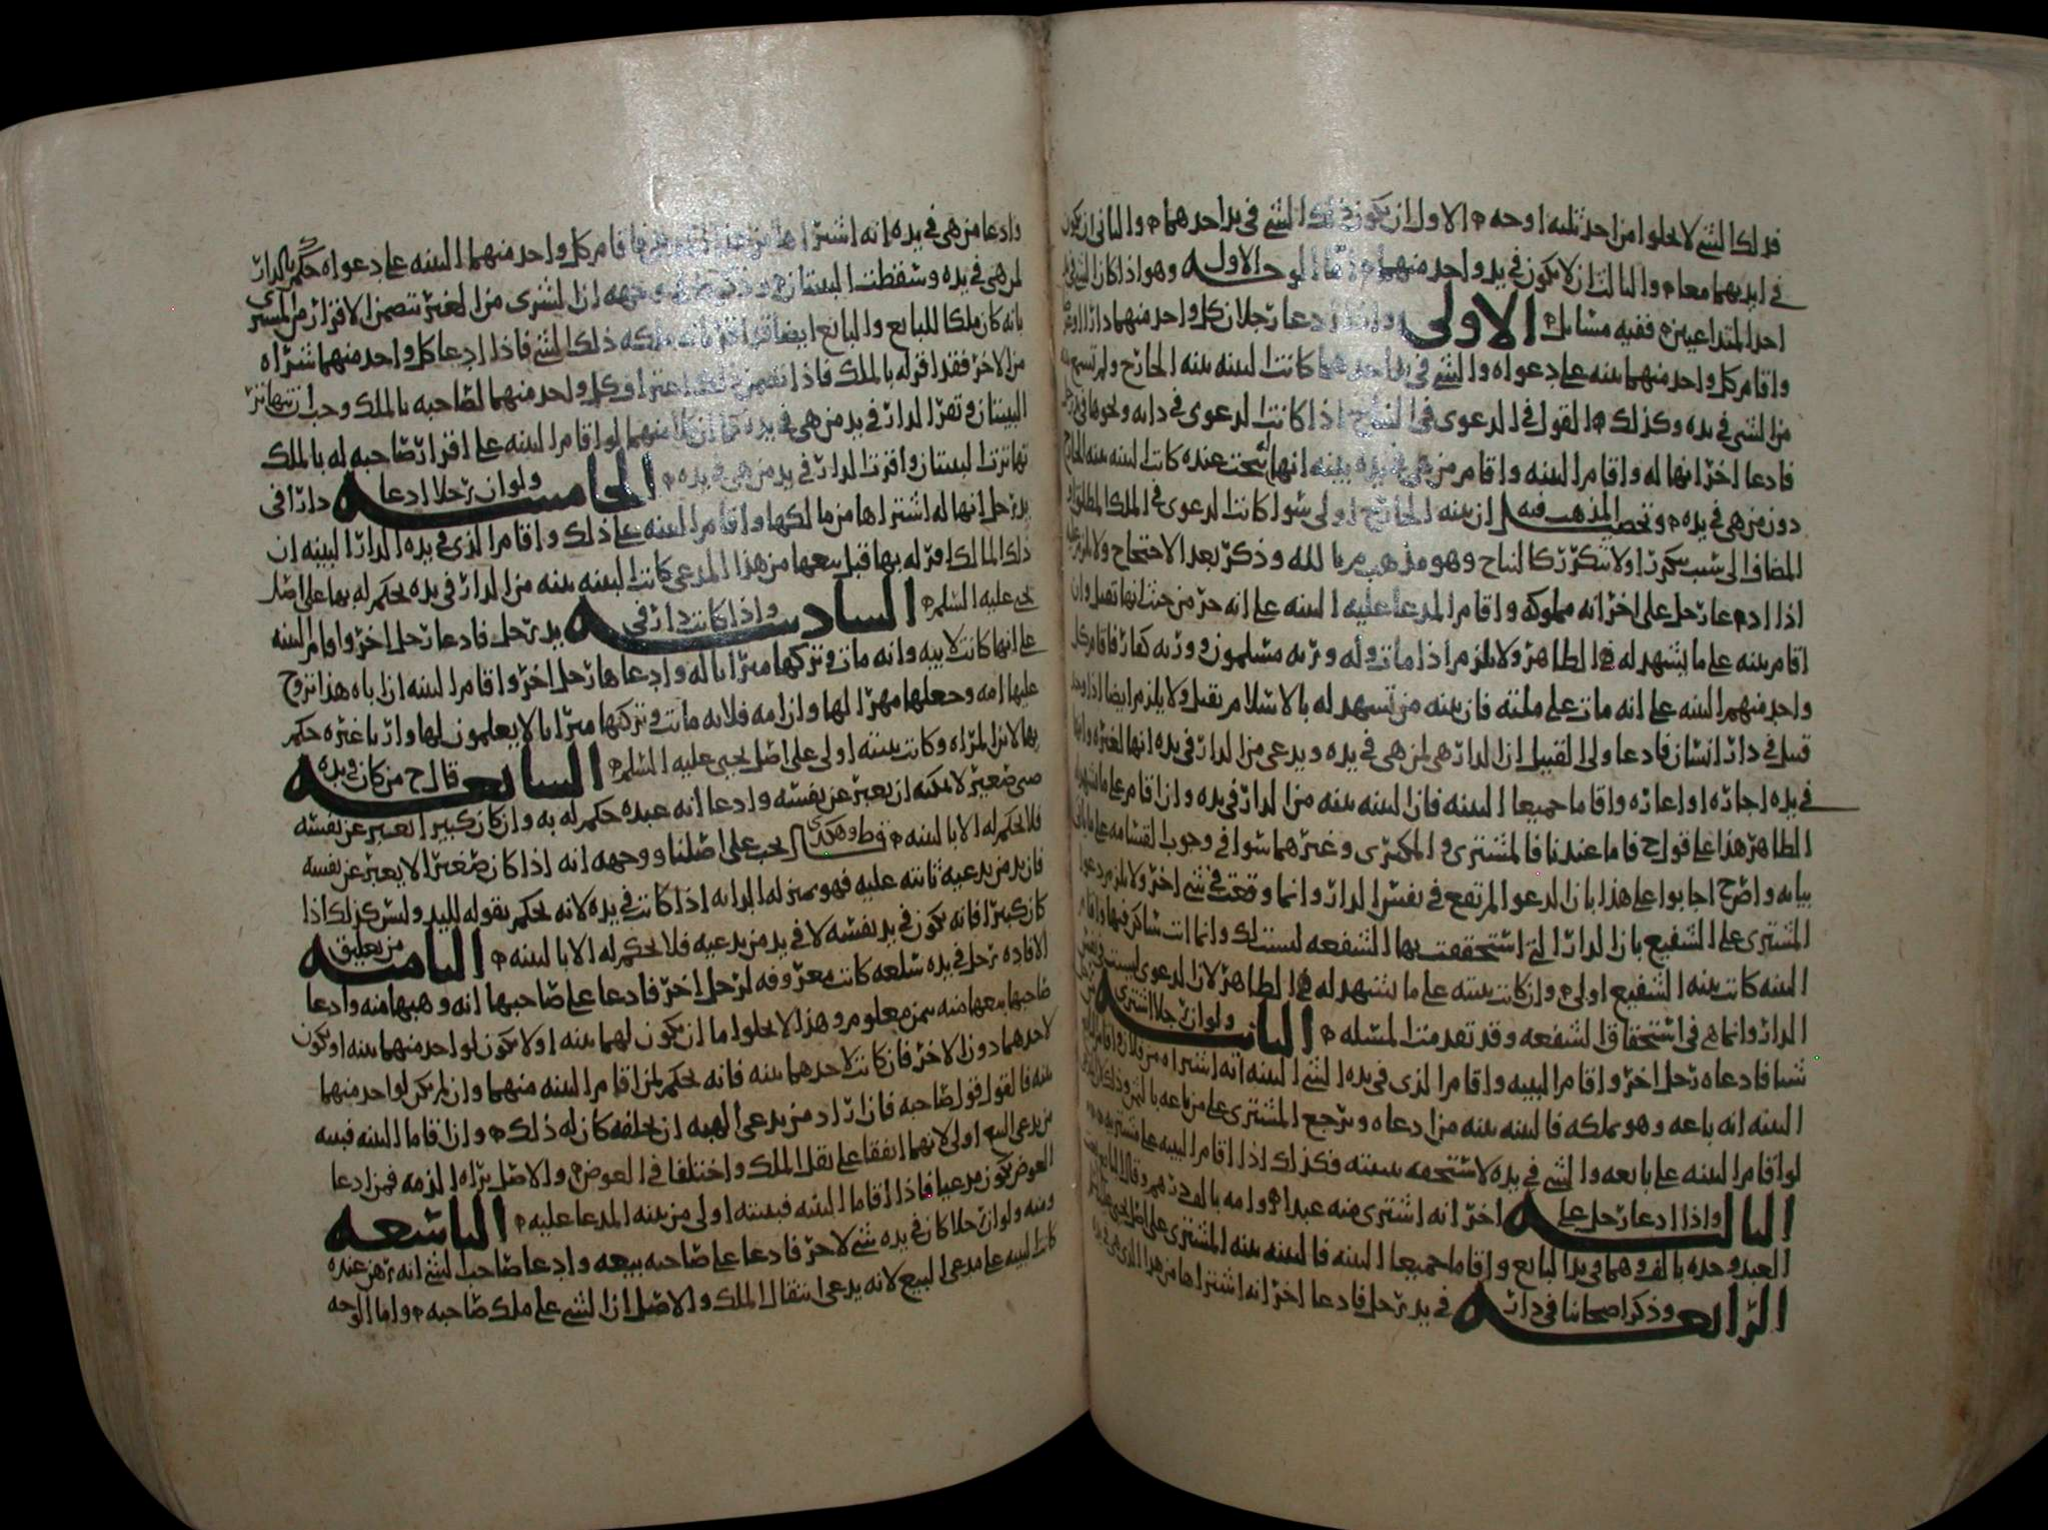 فذلك الشي لا يخلوا من احد ثلثه اوجه الاول ان يكون ذلك الشي في يد احدهما والثاني ان يكون
في ايديهما معا والثالث ان لا يكون في يد واحد منهما اما الوجه الاول وهو اذا كان الشي في يد
احد المتداعيين ففيه مسايل الاولى واذا ادعا رجلان كل واحد منهما دارا
واقام كل واحد منهما بينه على دعواه والشي في يد احدهما كانت البينه بينه الخارج ولم تسمع بينه
من الشي في يده وكذلك القول في الدعوى في النتاج اذا كانت الدعوى في دابه ونحوها في يد رجل
فادعا اخر انها له واقام البينه واقام من هي في يده بينه انها نتجت عنده كانت البينه بينه الخارج
دون من هي في يده وتحصيل المذهب فيه ان بينه الخارج اولى سوا كانت الدعوى في الملك المطلق او
المضاف الى سبب يتكرر او لا يتكرر كالنتاج وهو مذهب م بالله وذكر بعد الاحتجاج ولا يلزم
اذا ادعا رجل على اخر انه مملوكه واقام المدعا عليه البينه على انه حر من حيث انها تقبل وان
اقام بينه على ما يشهد له الظاهر ولا يلزم اذا مات وله ورثه مسلمون وورثه كفار فاقام كل
واحد منهم البينه على انه مات على ملته فان بينه من تشهد له بالاسلام تقبل ولا يلزم ايضا اذا وجد
قتيل في دار انسان فادعا ولي القتيل ان الدار هي لمن هي في يده ويدعي من الدار في يده انها لغيره وانها
في يده اجاره او اعاره واقاما جميعا البينه فان البينه بينه من الدار في يده وان اقام على ما شهد به
الظاهر هذا على قول ح فاما عندنا فالمشتري والمكتري وغيرهما سوا في وجوب القسامه على ما ياتي
بيانه واصح اجابوا على هذا بان الدعوا لم تقع في نفس الدار وانما وقعت في شي اخر ولا يلزم دعوا
المشتري على الشفيع بان الدار التي استحققت بها الشفعه ليست لك وانما انت ساكن فيها واقام
البينه كانت بينه الشفيع اولى وان كانت بينته على ما يشهد له الظاهر لان الدعوى ليست في نفس
الدار وانما هي في استحقاق الشفعه وقد تقدمت المسله الثانيه ولو ان رجلا اشترى
شيا فادعاه رجل اخر واقام البينه واقام الذي في يده الشي البينه انه اشتراه من فلان
البينه انه باعه وهو يملكه فالبينه بينه من ادعاه ويرجع المشتري على من باعه بالثمن وذلك
لو اقام البينه على بايعه والشي في يده لاستحقه ببينته فكذلك اذا اقام البينه على مشتريه
الثالثه واذا ادعا رجل على اخر انه اشترى منه عبدا وامه بالف درهم وقال البايع
العبد وحده بالف وهما في يد البايع واقاما جميعا البينه فالبينه بينه المشتري على اصل يحيى
الرابعه وذكر اصحابنا في دار في يد رجل فادعا اخر انه اشتراها من هذا الذي هي في يده
وادعا من هي في يده انه اشتراها من فاقام كل واحد منهما البينه على دعواه حكم بالدار
لمن هي في يده وسقطت البينتان ووجهه ان الشرى من الغير تتضمن الاقرار من المشتري
بانه كان ملكا للبايع والبايع ايضا ملكه ذلك الشي فاذا ادعا كل واحد منهما شراه
من الاخر فقد اقر له بالملك فاذا تضمن ذلك اعتراف كل واحد منهما لصاحبه بالملك وجب ان تتهاتر
البينتان وتقر الدار في يد من هي في يده كما ان كلا منهما لو اقام البينه على اقرار صاحبه له بالملك
تهاترت البينتان واقرت الدار في يد من هي في يده الخامسه ولو ان رجلا ادعا دارا في
يد رجل انها له اشتراها من مالكها واقام البينه على ذلك واقام الذي في يده الدار البينه ان
ذلك المالك اقر له بها قبل بيعها من هذا المدعي كانت البينه بينه من الدار في يده يحكم له بها على اصل
يحيى عليه السلم السادسه واذا كانت دار في يد رجل فادعا رجل اخر واقام البينه
على انها كانت لابيه وانه مات وتركها ميراثا له وادعاها رجل اخر واقام البينه ان اباه هذا تزوج
عليها امه وجعلها مهرا لها وان امه فلانه ماتت وتركتها ميراثا لا يعلمون لها وارثا غيره حكم
بها لابن المراه وكانت بينته اولى على اصل يحيى عليه السلم السابعه قال ح من كان في يده
صبي صغير لا يمكنه ان يعبر عن نفسه وادعا انه عبده حكم له به وان كان كبيرا يعبر عن نفسه
فلا يحكم له الا بالبينه قط وهكذى يجب على اصلنا ووجهه انه اذا كان صغيرا لا يعبر عن نفسه
فان يد من يدعيه ثابته عليه فهو بمنزله الدابه اذا كانت في يده لانه يحكم بقوله لليد وليس كذلك اذا
كان كبيرا فانه يكون في يد نفسه لا في يد من يدعيه فلا يحكم له الا بالبينه الثامنه من تعليق
الافاده رجل في يده سلعه كانت معروفه لرجل اخر فادعا على صاحبها انه وهبها منه وادعا
صاحبها بيعها منه بثمن معلوم وهذا لا يخلوا ما ان يكون لهما بينه او لا يكون لواحد منهما بينه او يكون
لاحدهما دون الاخر فان كانت لاحدهما بينه فانه يحكم لمن اقام البينه منهما وان لم يكن لواحد منهما
بينه فالقول قول صاحبه فان اراد من يدعي الهبه ان يحلفه كان له ذلك وان اقاما البينه فبينه
من يدعي البيع اولى لانهما اتفقا على نقل الملك واختلفا في العوض والاصل براه الذمه فمن ادعا
العوض يكون مدعيا فاذا اقاما البينه فبينته اولى من بينه المدعا عليه التاسعه
ومنه ولو ان رجلا كان في يده شي لاخر فادعا على صاحبه بيعه وادعا صاحب الشي انه رهن عنده
كانت البينه على مدعي البيع لانه يدعي انتقال الملك والاصل ان الشي على ملك صاحبه واما الوجه